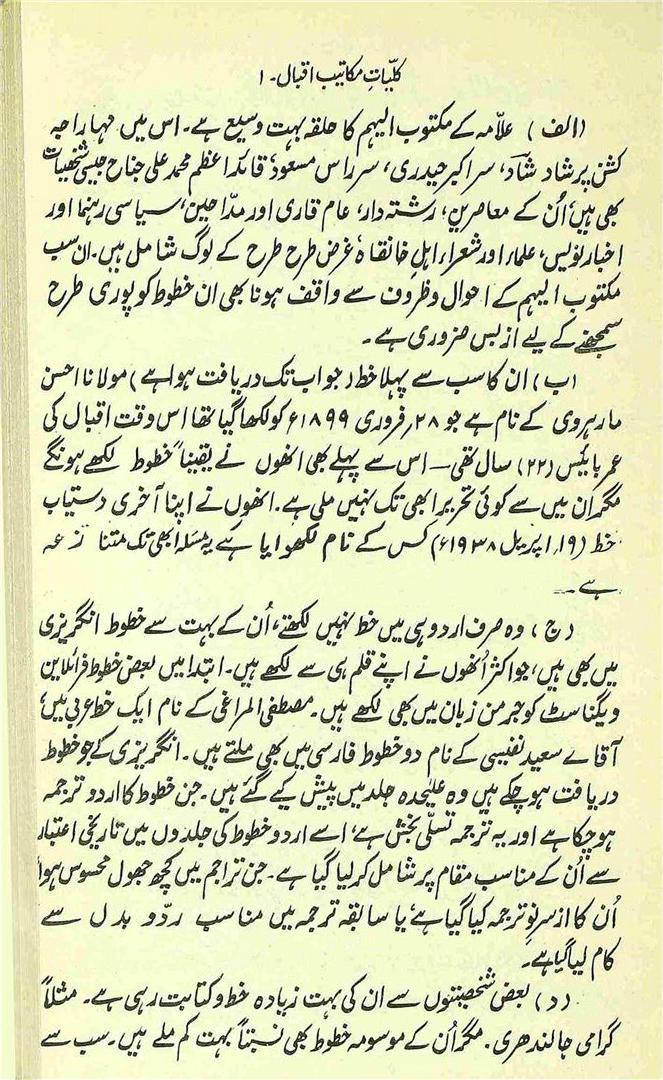 کلیاتِ مکاتیب اقبال۔ ۱
(الف) علّامہ کے مکتوب الیہم کا حلقہ بہت وسیع ہے۔ اس میں مہاراجہ
کشن پرشاد شاد، سر اکبر حیدری، سر راس مسعود، قائد اعظم محمد علی جناح جیسی شخصیات
بھی ہیں، اُن کے معاصرین، رشتہ دار، عام قاری اور مدّاحین، سیاسی رہنما اور
اخبار نویس، علماء اور شعراء، اہلِ خانقاہ غرض طرح طرح کے لوگ شامل ہیں۔ ان سب
مکتوب الیہم کے احوال وظروف سے واقف ہونا بھی ان خطوط کو پوری طرح
سمجھنے کے لیے ازبس ضروری ہے۔
(ب) ان کا سب سے پہلا خط (جو اب تک دریافت ہوا ہے) مولانا احسن
مارہروی کے نام ہے جو ۲۸؍ فروری ۱۸۹۹ء کو لکھا گیا تھا اس وقت اقبال کی
عمر بائیس (۲۲) سال تھی — اس سے پہلے بھی انھوں نے یقیناً خطوط لکھے ہونگے
مگر ان میں سے کوئی تحریر ابھی تک نہیں ملی ہے۔ انھوں نے اپنا آخری دستیاب
خط (۱۹؍ اپریل ۱۹۳۸ء) کس کے نام لکھوایا ہے یہ مسئلہ ابھی تک متنازعہ
ہے۔
(ج) وہ صرف اردو ہی میں خط نہیں لکھتے، اُن کے بہت سے خطوط انگریزی
میں بھی ہیں، جو اکثر اُنھوں نے اپنے قلم ہی سے لکھے ہیں۔ ابتدا میں بعض خطوط فرائلاین
ویگناسٹ کو جرمن زبان میں بھی لکھے ہیں۔ مصطفیٰ المراغی کے نام ایک خط عربی میں،
آقاے سعید نفیسی کے نام دو خطوط فارسی میں بھی ملتے ہیں۔ انگریزی کے جو خطوط
دریافت ہو چکے ہیں وہ علیٰحدہ جلد میں پیش کیے گئے ہیں۔ جن خطوط کا اردو ترجمہ
ہو چکا ہے اور یہ ترجمہ تسلّی بخش ہے، اسے اردو خطوط کی جلدوں میں تاریخی اعتبار
سے اُن کے مناسب مقام پر شامل کر لیا گیا ہے۔ جن تراجم میں کچھ جھول محسوس ہوا
اُن کا از سرِ نو ترجمہ کیا گیا ہے، یا سابقہ ترجمہ میں مناسب ردّ و بدل سے
کام لیا گیا ہے۔
(د) بعض شخصیتوں سے ان کی بہت زیادہ خط و کتابت رہی ہے۔ مثلاً
گرامی جالندھری۔ مگر اُن کے موسومہ خطوط بھی نسبتاً بہت کم ملے ہیں۔ سب سے